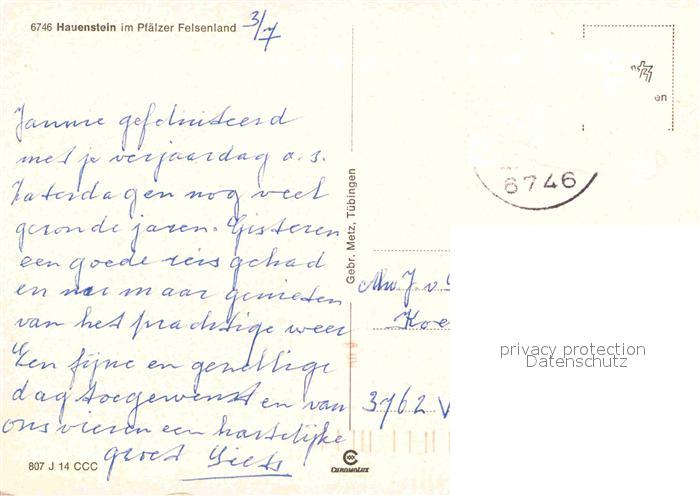 6746 Hauenstein im Pfälzer Felsenland 3/7
Jannie gefeliciteerd
met je verjaardag a.s.
Zaterdag en nog veel
gezonde jaren. Gisteren
een goede reis gehad
en nu maar genieten
van het prachtige weer
Een fijne en gezellige
dag toegewenst en van
ons vieren een hartelijke
groet
807 J 14 CCC
Gebr. Metz, Tübingen
CHROMOLUX
en
6746
Mw J. v
Koe
3762 V
privacy protection
Datenschutz